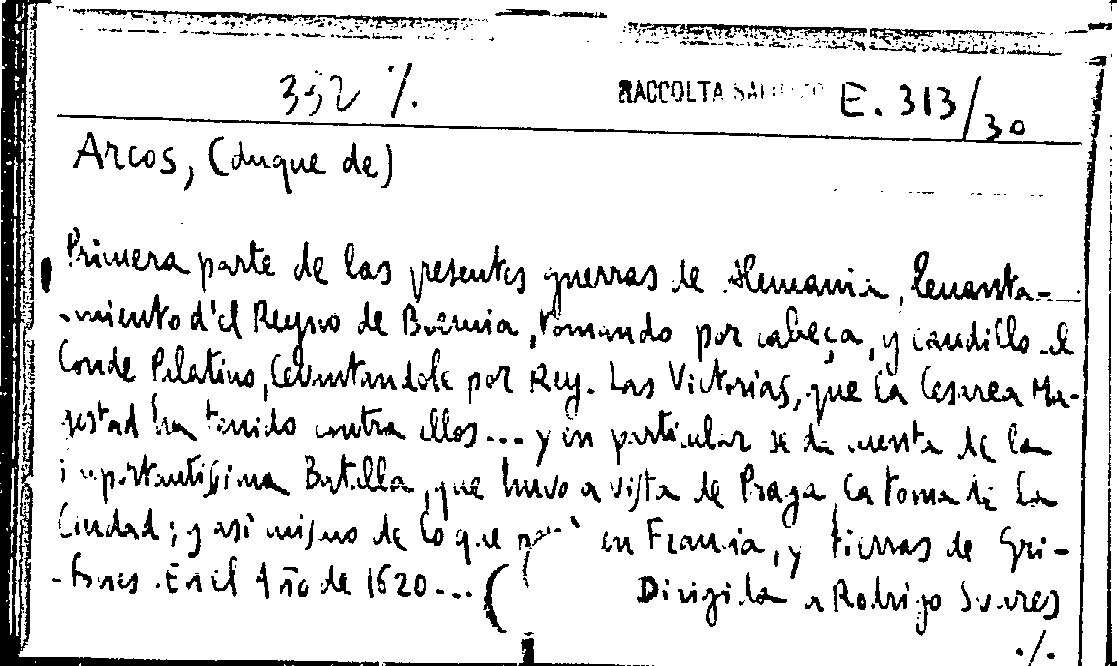 332 ./.
RACCOLTA E. 313/30
Arcos, (duque de)
Primera parte de las presentes guerras de Alemania, levanta-
-miento d'el Reyno de Boemia, tomando por cabeça, y caudillo el
Conde Palatino, levantandole por Rey. Las Victorias, que la Cesarea Ma-
gestad ha tenido contra ellos... y en particular se da cuenta de la
importantissima Batalla, que huvo a vista de Praga, la toma de la
Ciudad; y asi mismo de lo que en Francia, y tierras de Gri-
-sones. En el Año de 1620... ( Dirigida a Rodrigo Suares
./.